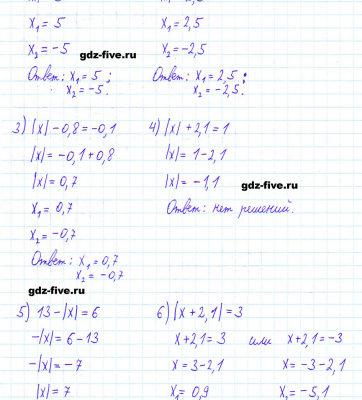 x₁ = 5
x₂ = -5
gdz-five.ru
Ответ: x₁ = 5 ;
x₂ = -5.
x₁ = 2,5
x₂ = -2,5
Ответ: x₁ = 2,5 ;
x₂ = -2,5.
3) |x| - 0,8 = -0,1
|x| = -0,1 + 0,8
|x| = 0,7
x₁ = 0,7
x₂ = -0,7
Ответ: x₁ = 0,7
x₂ = -0,7
gdz-five.ru
4) |x| + 2,1 = 1
|x| = 1 - 2,1
|x| = -1,1
gdz-five.ru
Ответ: нет решений.
5) 13 - |x| = 6
-|x| = 6 - 13
-|x| = -7
|x| = 7
6) |x + 2,1| = 3
x + 2,1 = 3 или x + 2,1 = -3
x = 3 - 2,1 x = -3 - 2,1
x₁ = 0,9 x₂ = -5,1